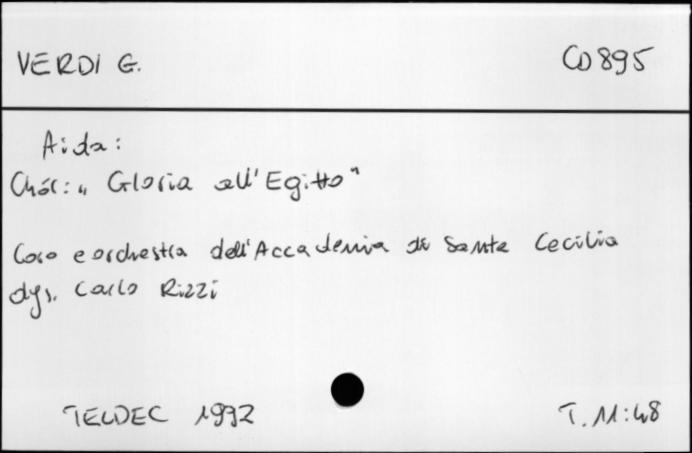 VERDI G. CD 895
Aida:
Chór: „Gloria all'Egitto"
Coro e orchestra dell'Accademia di Santa Cecilia
dyr. Carlo Rizzi
TELDEC 1992 T. 11:48